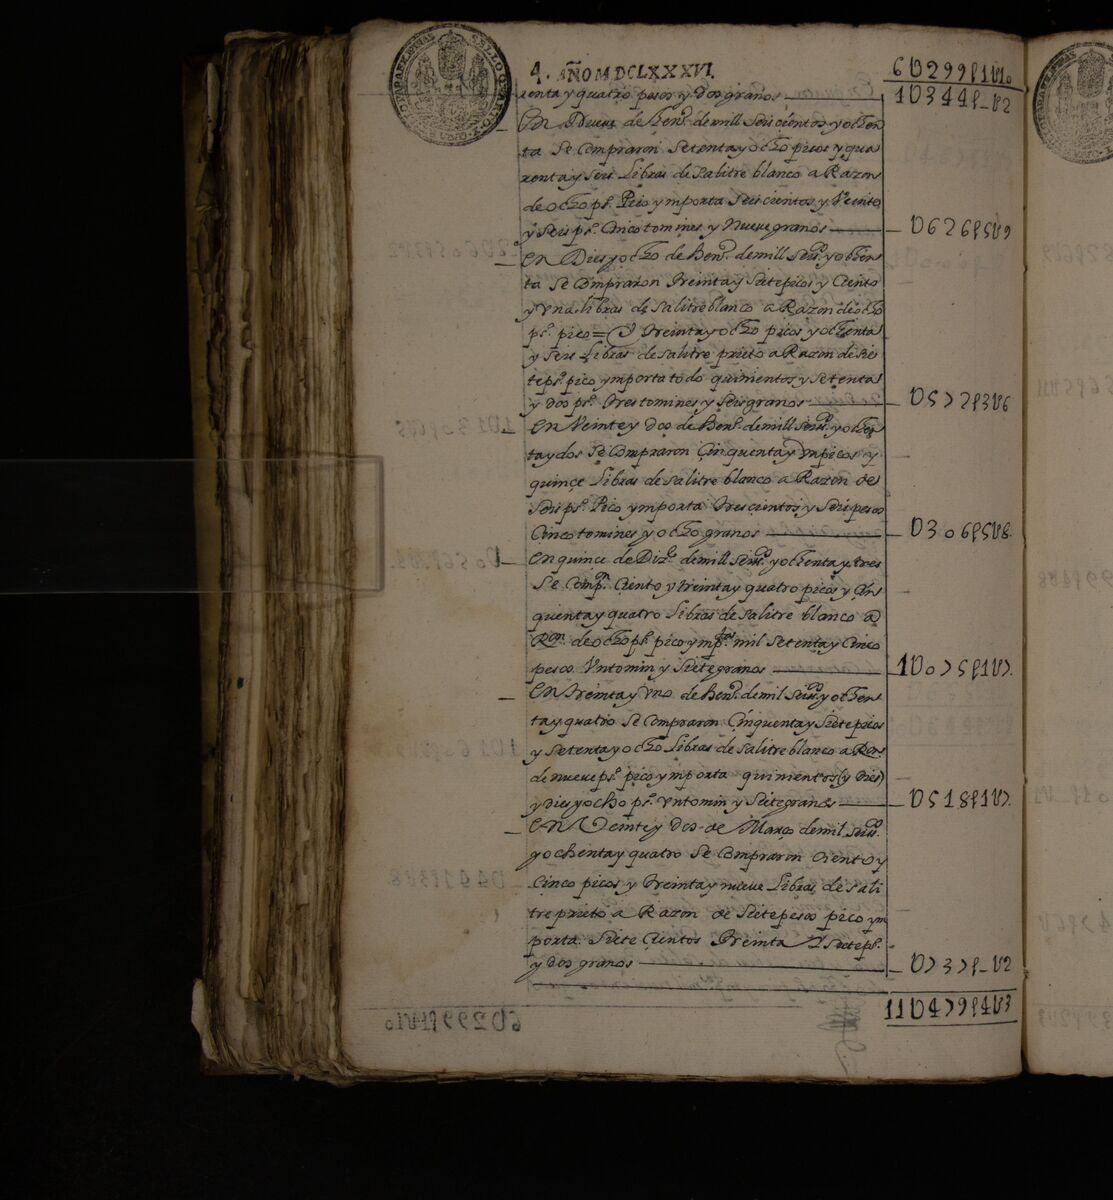 4. AÑO MDCLXXXVI.
6U299p1U10
renta y quatro pesos y dos granos 1U344p_U2
En Nueve de Hen.º de mill seiscientos y ochen
ta se compraron setenta y ocho picos y qua
renta y seis libras de salitre blanco a Razon
de ocho ps. Pico ymporta seiscientos y Veinte
y seis ps. cinco tomines y nueve granos U626p5U9
En Dies y ocho de Hen.º de mill seis.os y ochen
ta se compraron treinta y siete picos y ciento
y Una libras de salitre blanco a Razon de ocho
ps. pico = Y treinta y ocho picos y ochenta
y seis libras de salitre prieto a Razon de sie
te ps. pico ymporta todo quinientos y setenta
y dos ps. tres tomines y seis granos U572p3U6
En Veinte y dos de Hen.º de mill seis.os y ochen
ta y dos se compraron cinquenta y Un picos y
quinçe libras de salitre blanco a Razon de
seis ps. Pico ymporta trescientos y seis pesos
cinco tomines y ocho granos U306p5U8.
En quince de Diz.e de mill seis.os y ochenta y tres
se comp.on ciento y treinta y quatro picos y cin
quenta y quatro libras de salitre blanco a
R.on de ocho ps. pico ymp.tan mil setenta y cinco
pesos Un tomin y siete granos 1U075p1U7.
En treinta y Uno de Hen.º de mil seis.os y ochen
ta y quatro se compraron cinquenta y siete picos
y setenta y ocho libras de salitre blanco a R.on
de nueve ps. pico ymporta quinientos (y dies)
y dies y ocho ps. Un tomin y siete granos U518p1U7.
En Veinte y dos de Março de mil seis.os
y ochenta y quatro se compraron ciento y
cinco picos y treinta y nueve libras de sali
tre prieto a Razon de siete pesos pico ym
porta siete cientos treinta y siete ps.
y dos granos U737p_U2
11U479p4U3